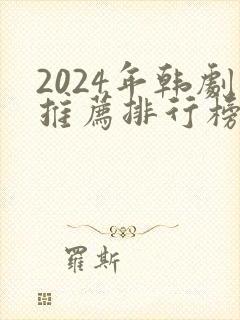 2024年韩劇
推薦排行榜
羅斯